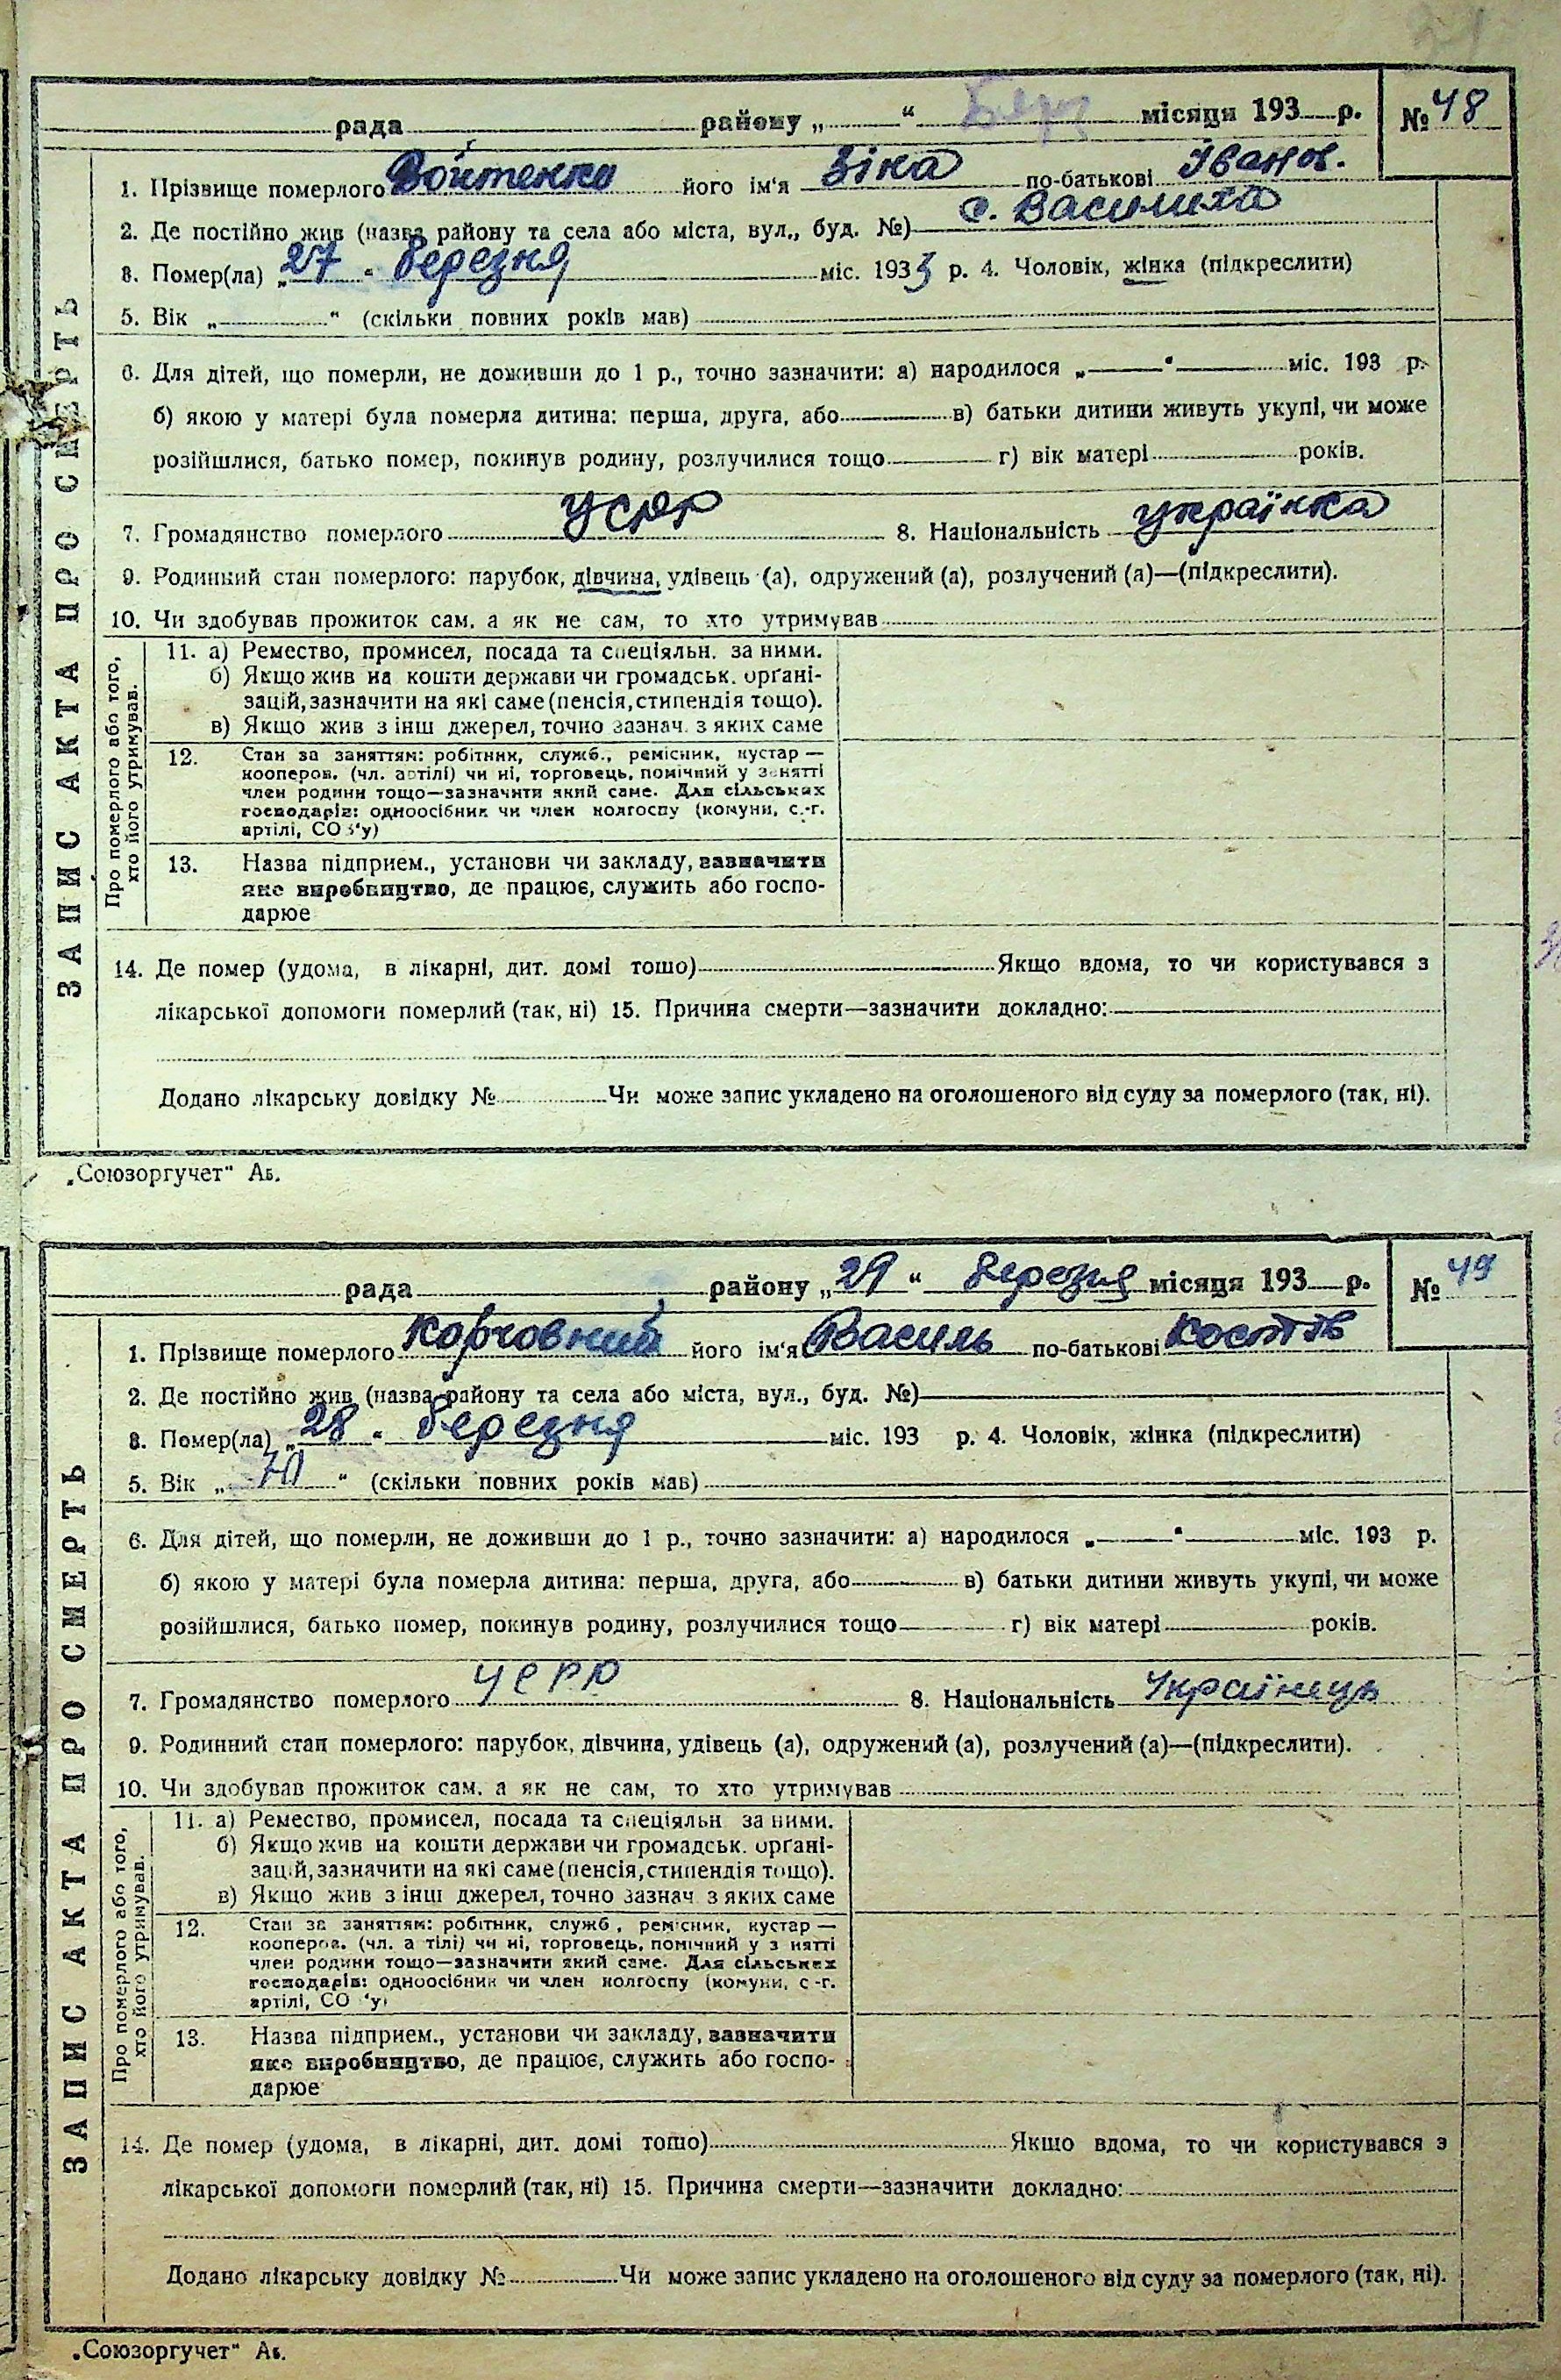 рада району „ “ місяця 193 р. № 48
1. Прізвище померлого Войтенко його ім'я Зіна по-батькові Іванов.
2. Де постійно жив (назва району та села або міста, вул., буд. №) с. Василиха
3. Помер(ла) „27 “ березня міс. 1933 р. 4. Чоловік, жінка (підкреслити)
5. Вік „ “ (скільки повних років мав)
6. Для дітей, що померли, не доживши до 1 р., точно зазначити: а) народилося „ “ міс. 193 р.
б) якою у матері була померла дитина: перша, друга, або в) батьки дитини живуть укупі, чи може
розійшлися, батько помер, покинув родину, розлучилися тощо г) вік матері років.
7. Громадянство померлого УСРР 8. Національність українка
9. Родинний стан померлого: парубок, дівчина, удівець (а), одружений (а), розлучений (а)—(підкреслити).
10. Чи здобував прожиток сам, а як не сам, то хто утримував
ЗАПИС АКТА ПРО СМЕРТЬ
Про померлого або того,
хто його утримував.
11. а) Ремество, промисел, посада та спеціяльн. за ними.
б) Якщо жив на кошти держави чи громадськ. орґані-
зацій, зазначити на які саме (пенсія, стипендія тощо).
в) Якщо жив з інш джерел, точно зазнач. з яких саме
12. Стан за заняттям: робітник, служб., ремісник, кустар —
кооперов. (чл. артілі) чи ні, торговець, помічний у занятті
член родини тощо—зазначити який саме. Для сільських
господарів: одноосібник чи член колгоспу (комуни, с.-г.
артілі, СОЗ'у)
13. Назва підприєм., установи чи закладу, зазначити
яке виробництво, де працює, служить або госпо-
дарює
14. Де помер (удома, в лікарні, дит. домі тощо) Якщо вдома, то чи користувався з
лікарської допомоги померлий (так, ні) 15. Причина смерти—зазначити докладно:
Додано лікарську довідку № Чи може запис укладено на оголошеного від суду за померлого (так, ні).
„Союзоргучет“ Ав.
рада району „29 “ березня місяця 193 р. № 49
1. Прізвище померлого Корчовний його ім'я Василь по-батькові Костів
2. Де постійно жив (назва району та села або міста, вул., буд. №)
3. Помер(ла) „28 “ березня міс. 193 р. 4. Чоловік, жінка (підкреслити)
5. Вік „ “ (скільки повних років мав)
6. Для дітей, що померли, не доживши до 1 р., точно зазначити: а) народилося „ “ міс. 193 р.
б) якою у матері була померла дитина: перша, друга, або в) батьки дитини живуть укупі, чи може
розійшлися, батько помер, покинув родину, розлучилися тощо г) вік матері років.
7. Громадянство померлого УСРР 8. Національність Українець
9. Родинний стан померлого: парубок, дівчина, удівець (а), одружений (а), розлучений (а)—(підкреслити).
10. Чи здобував прожиток сам, а як не сам, то хто утримував
ЗАПИС АКТА ПРО СМЕРТЬ
Про померлого або того,
хто його утримував.
11. а) Ремество, промисел, посада та спеціяльн за ними.
б) Якщо жив на кошти держави чи громадськ. орґані-
зацій, зазначити на які саме (пенсія, стипендія тощо).
в) Якщо жив з інш джерел, точно зазнач з яких саме
12. Стан за заняттям: робітник, служб., ремісник, кустар —
кооперов. (чл. артілі) чи ні, торговець, помічний у занятті
член родини тощо—зазначити який саме. Для сільських
господарів: одноосібник чи член колгоспу (комуни, с-г.
артілі, СОЗ'у)
13. Назва підприєм., установи чи закладу, зазначити
яке виробництво, де працює, служить або госпо-
дарює
14. Де помер (удома, в лікарні, дит. домі тощо) Якщо вдома, то чи користувався з
лікарської допомоги померлий (так, ні) 15. Причина смерти—зазначити докладно:
Додано лікарську довідку № Чи може запис укладено на оголошеного від суду за померлого (так, ні).
„Союзоргучет“ Ав.